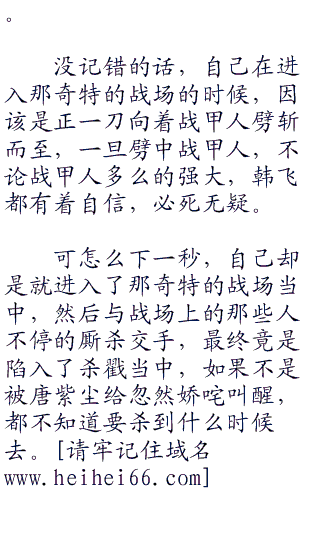 。
没记错的话，自己在进
入那奇特的战场的时候，因
该是正一刀向着战甲人劈斩
而至，一旦劈中战甲人，不
论战甲人多么的强大，韩飞
都有着自信，必死无疑。
可怎么下一秒，自己却
是就进入了那奇特的战场当
中，然后与战场上的那些人
不停的厮杀交手，最终竟是
陷入了杀戮当中，如果不是
被唐紫尘给忽然娇咤叫醒，
都不知道要杀到什么时候
去。[请牢记住域名
www.heihei66.com]